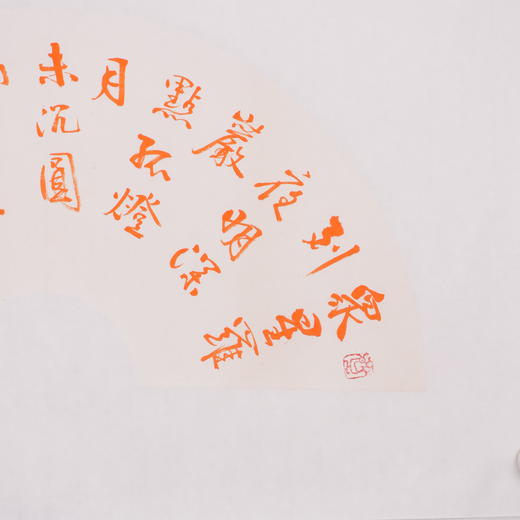 眾星羅
列
夜明深
巖
點孤燈
月
未沉圓